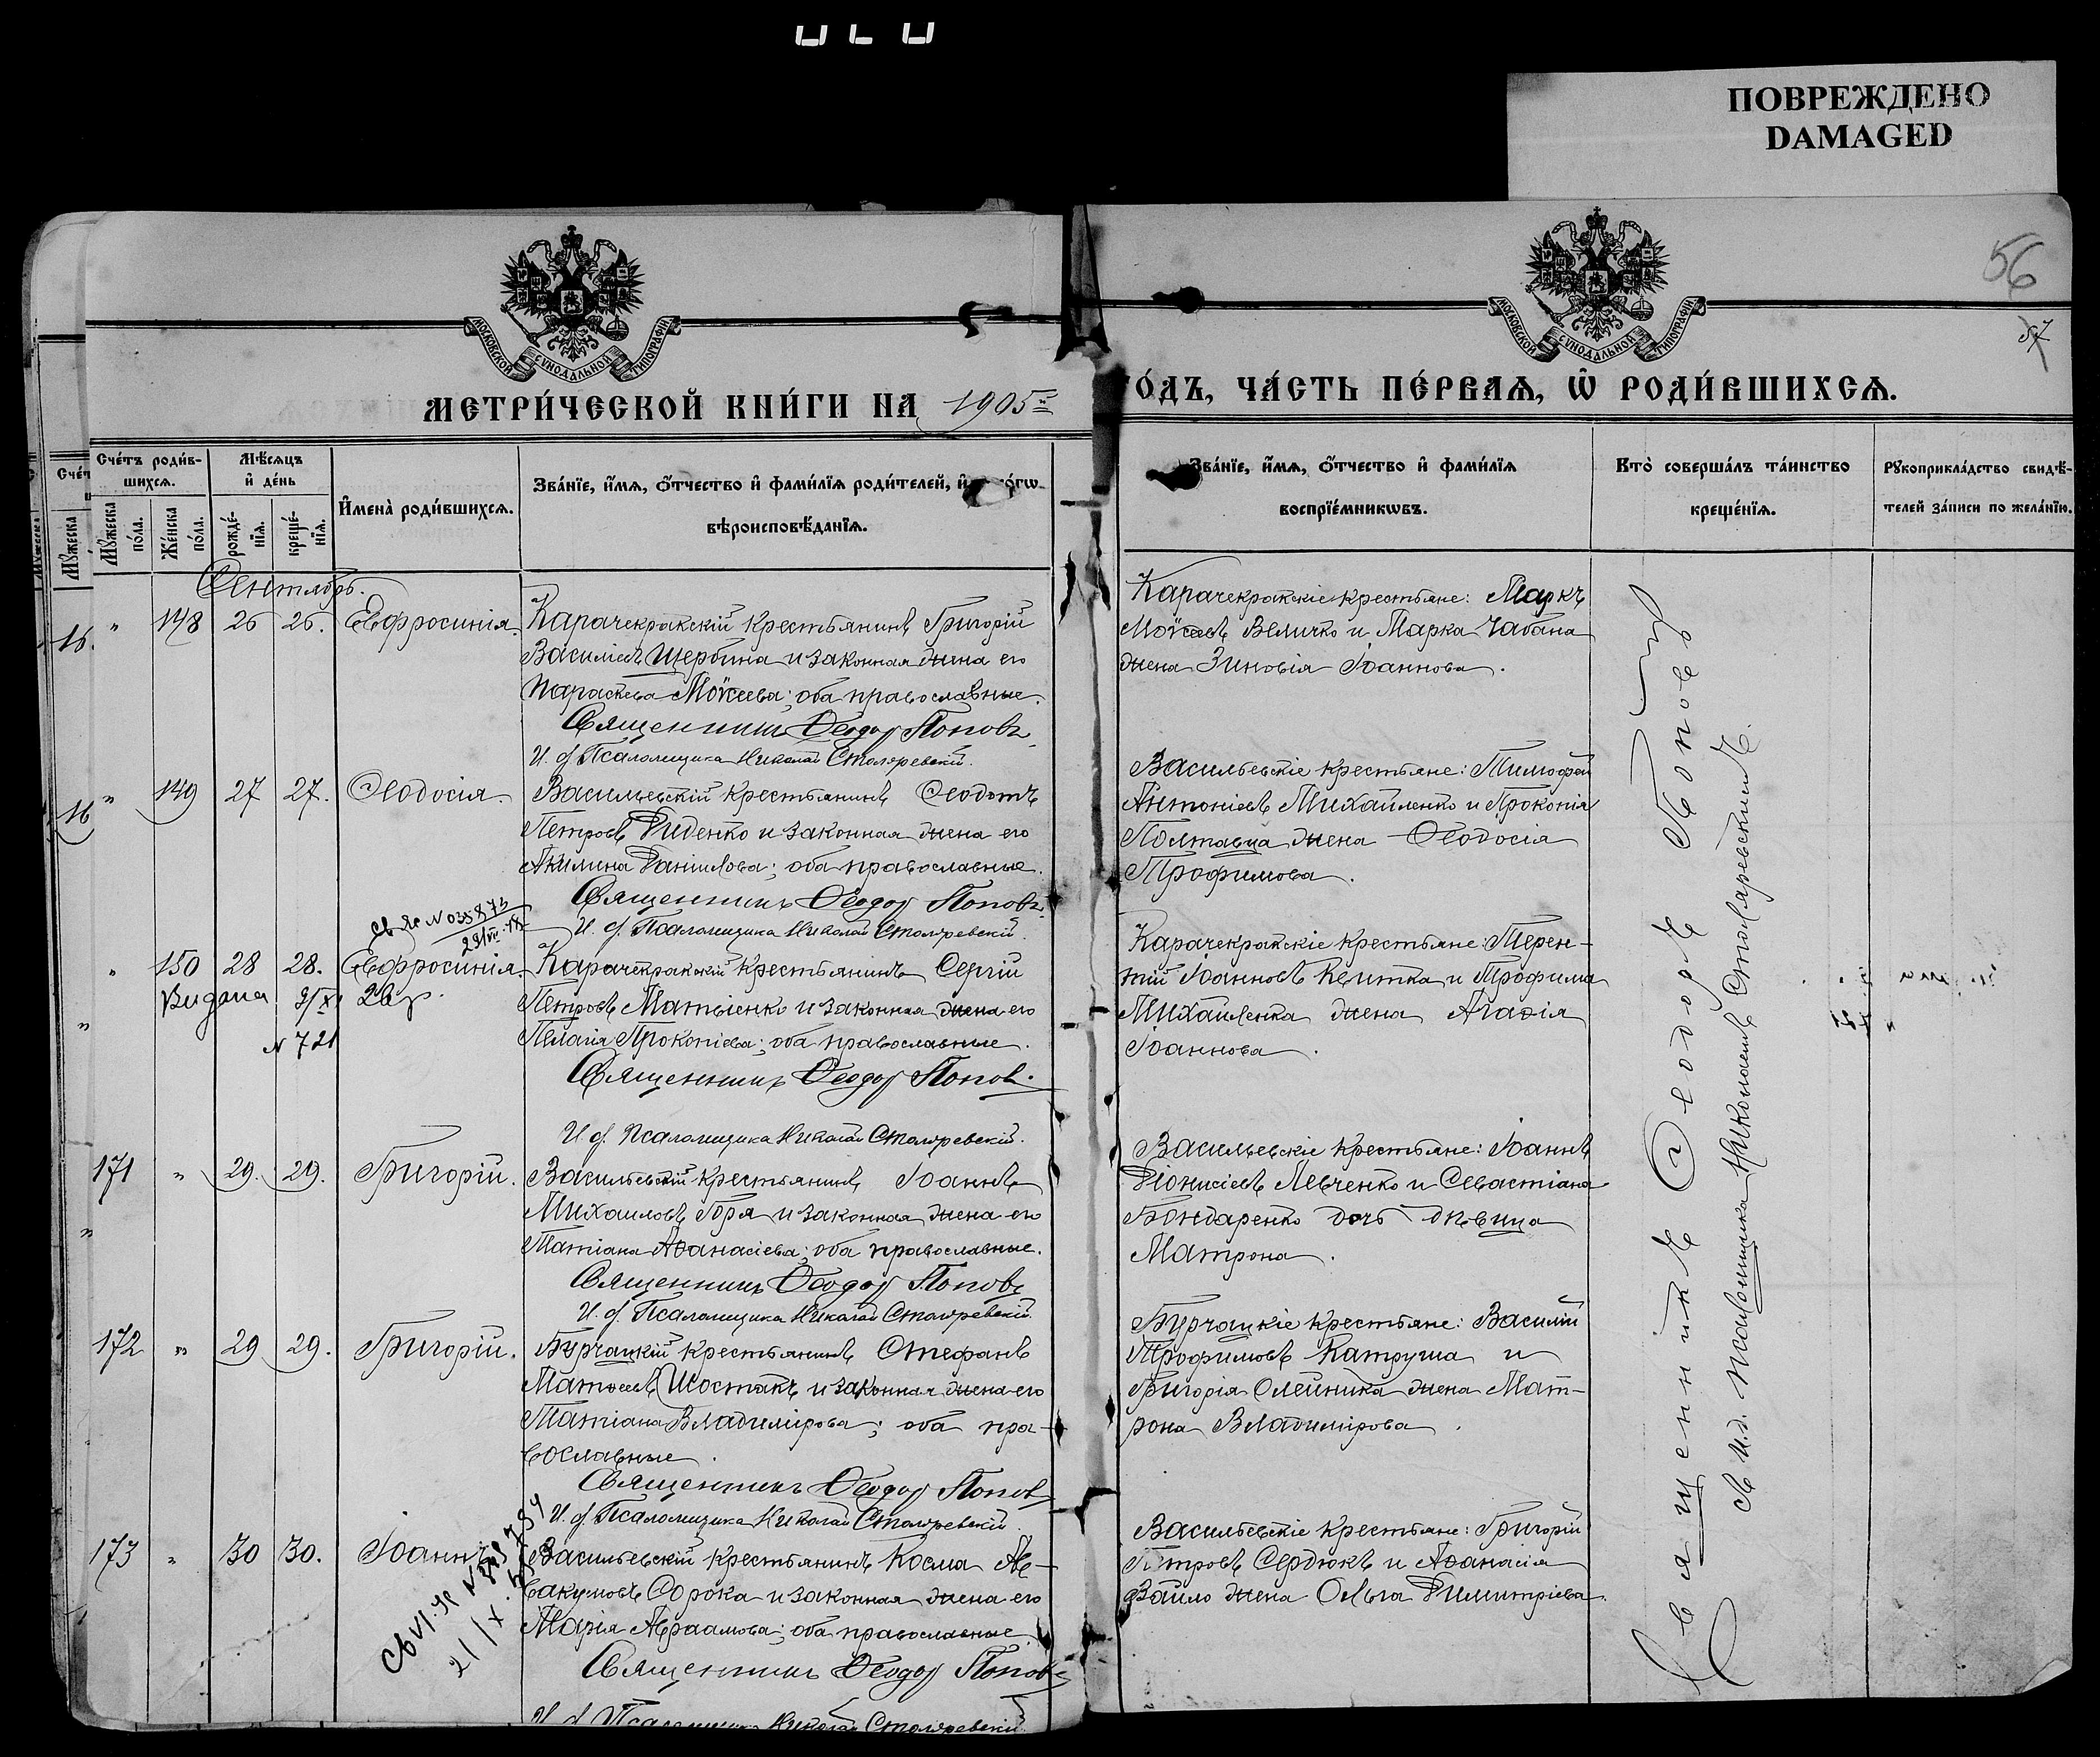 ПОВРЕЖДЕНО
DAMAGED
56
57
МОСКОВСКОЙ СѴНОДАЛЬНОЙ ТИПОГРАФІИ
МОСКОВСКОЙ СѴНОДАЛЬНОЙ ТИПОГРАФІИ
МЕТРИ́ЧЕСКОЙ КНИ́ГИ НА 1905й
ГО́ДЪ, ЧА́СТЬ ПЕ́РВАѦ, Ѽ РОДИ́ВШИХСѦ.
Сче́тъ роди́в-
шихсѧ.
Мꙋ́жеска по́ла.
Же́нска по́ла.
Мѣ́сѧцъ
и҆ де́нь
рожде́-
нїѧ.
креще́-
нїѧ.
И҆мена̀ роди́вшихсѧ.
Зва́нїе, и҆́мѧ, ѻ҆́тчество и҆ фами́лїѧ роди́телей, и҆
вѣроисповѣ́данїѧ.
Зва́нїе, и҆́мѧ, ѻ҆́тчество и҆ фами́лїѧ
воспрїе́мникѡвъ.
Кто̀ соверша́лъ та́инство
креще́нїѧ.
Рꙋкоприкла́дство свидѣ́-
телей за́писи по жела́нїю.
Сентябрь.
" 148 26 26. Евфросинія.
Карачекракскій крестьянинъ Григорій
Василіевъ Щербина и законная жена его
Параскева Моѵсеева; оба православные.
Священникъ Ѳеодоръ Поповъ
И. д. Псаломщика Николай Столяревскій.
Карачекракскіе крестьяне: Маркъ
Моѵсеевъ Величко и Марка Чабана
жена Зиновія Іоаннова.
" 149 27 27. Ѳеодосія.
Васильевскій крестьянинъ Ѳеодотъ
Петровъ Диденко и законная жена его
Акилина Даніилова; оба православные.
Священникъ Ѳеодоръ Поповъ
И. д. Псаломщика Николай Столяревскій.
Васильевскіе крестьяне: Тимофей
Антоніевъ Михайленко и Прокопія
Полтавца жена Ѳеодосія
Трофимова.
" 150 28 28. Евфросинія.
Видана 9/XI 2 вр.
N 721
Карачекракскій крестьянинъ Сергій
Петровъ Матвіенко и законная жена его
Пелагія Прокопіева; оба православные.
Священникъ Ѳеодоръ Поповъ.
И. д. Псаломщика Николай Столяревскій.
Карачекракскіе крестьяне: Терен-
тій Іоанновъ и Трофима
Михайленка жена Агаѳія
Іоаннова.
171 " 29. 29. Григорій.
Васильевскій крестьянинъ Іоаннъ
Михаиловъ Горя и законная жена его
Татіана Аѳанасіева; оба православные.
Священникъ Ѳеодоръ Поповъ
И. д. Псаломщика Николай Столяревскій.
Васильевскіе крестьяне: Іоаннъ
Діонисіевъ Левченко и Севастіана
Бондаренко дочь дѣвица
Матрона.
172 " 29 29. Григорій.
Бурчацкій крестьянинъ Стефанъ
Матѳеевъ Шостакъ и законная жена его
Татіана Владимірова; оба пра-
вославные.
Священникъ Ѳеодоръ Поповъ
И. д. Псаломщика Николай Столяревскій.
Бурчацкіе крестьяне: Василій
Трофимовъ Катруша и
Григорія Олейника жена Мат-
рона Владимірова.
173 " 30 30. Іоаннъ
21/X
Васильевскій крестьянинъ Косма Ав-
вакумовъ Сорока и законная жена его
Марія Авраамова; оба православные.
Священникъ Ѳеодоръ Поповъ
И. д. Псаломщика Николай Столяревскій
Васильевскіе крестьяне: Григорій
Петровъ Сердюкъ и Аѳанасія
жена Ольга Димитріева.
Священникъ Ѳеодоръ Поповъ
съ и.д. псаломщика Николаемъ Столяревскимъ.